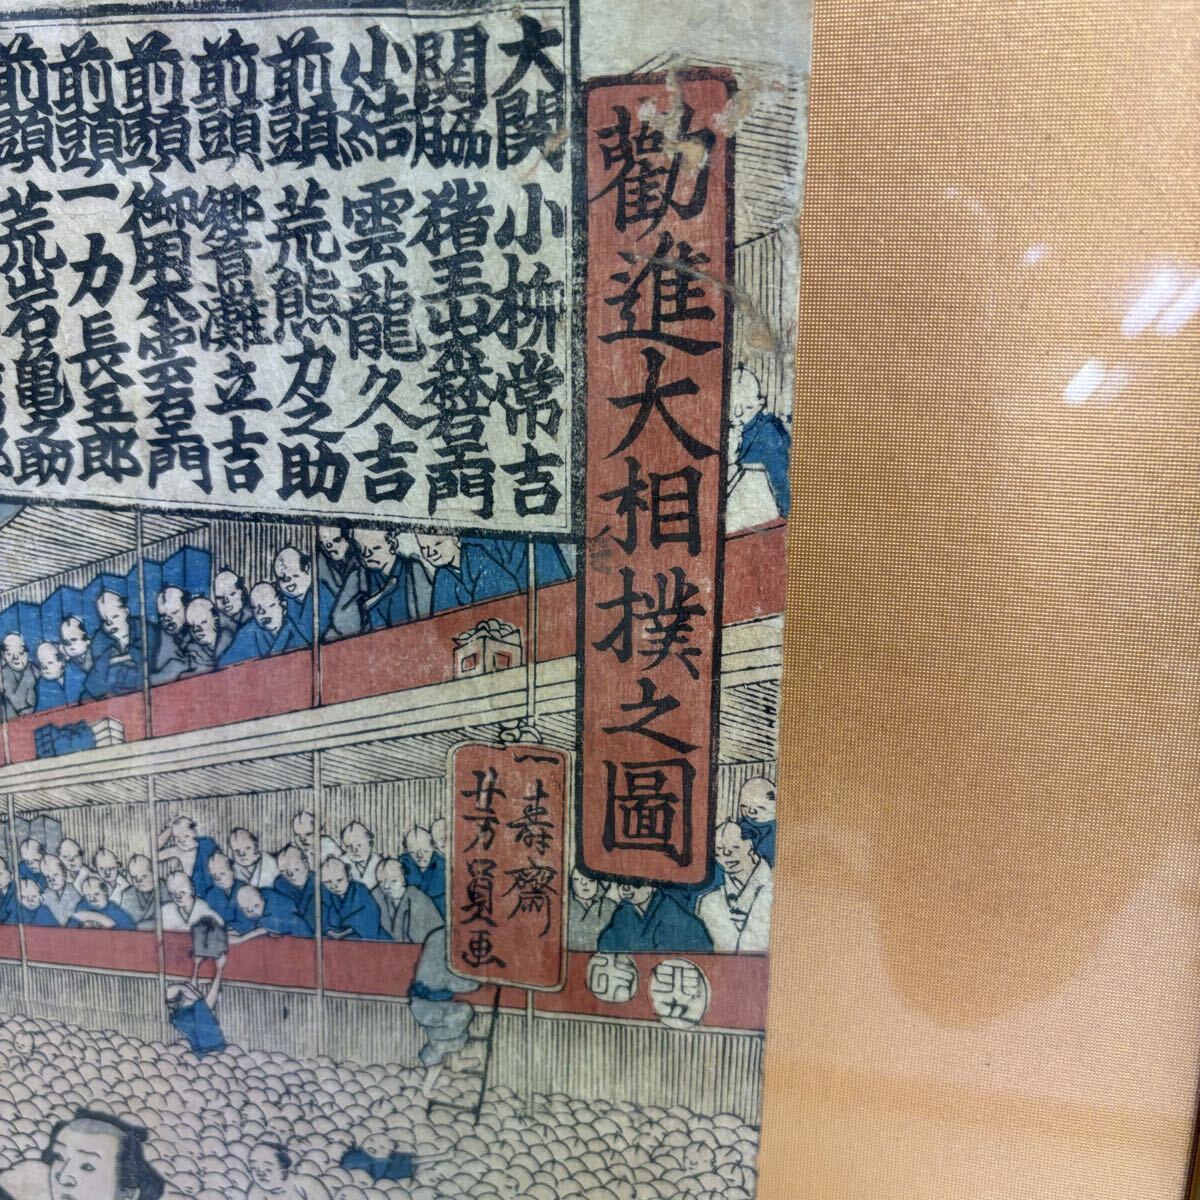 勸進大相撲之圖
大関 小柳常吉
関脇 猪王山森右エ門
小結 雲龍久吉
前頭 荒熊力之助
前頭 響灘立吉
前頭 御用木雲右エ門
前頭 一力長五郎
前頭 荒岩亀之助
一壽齋
芳員画